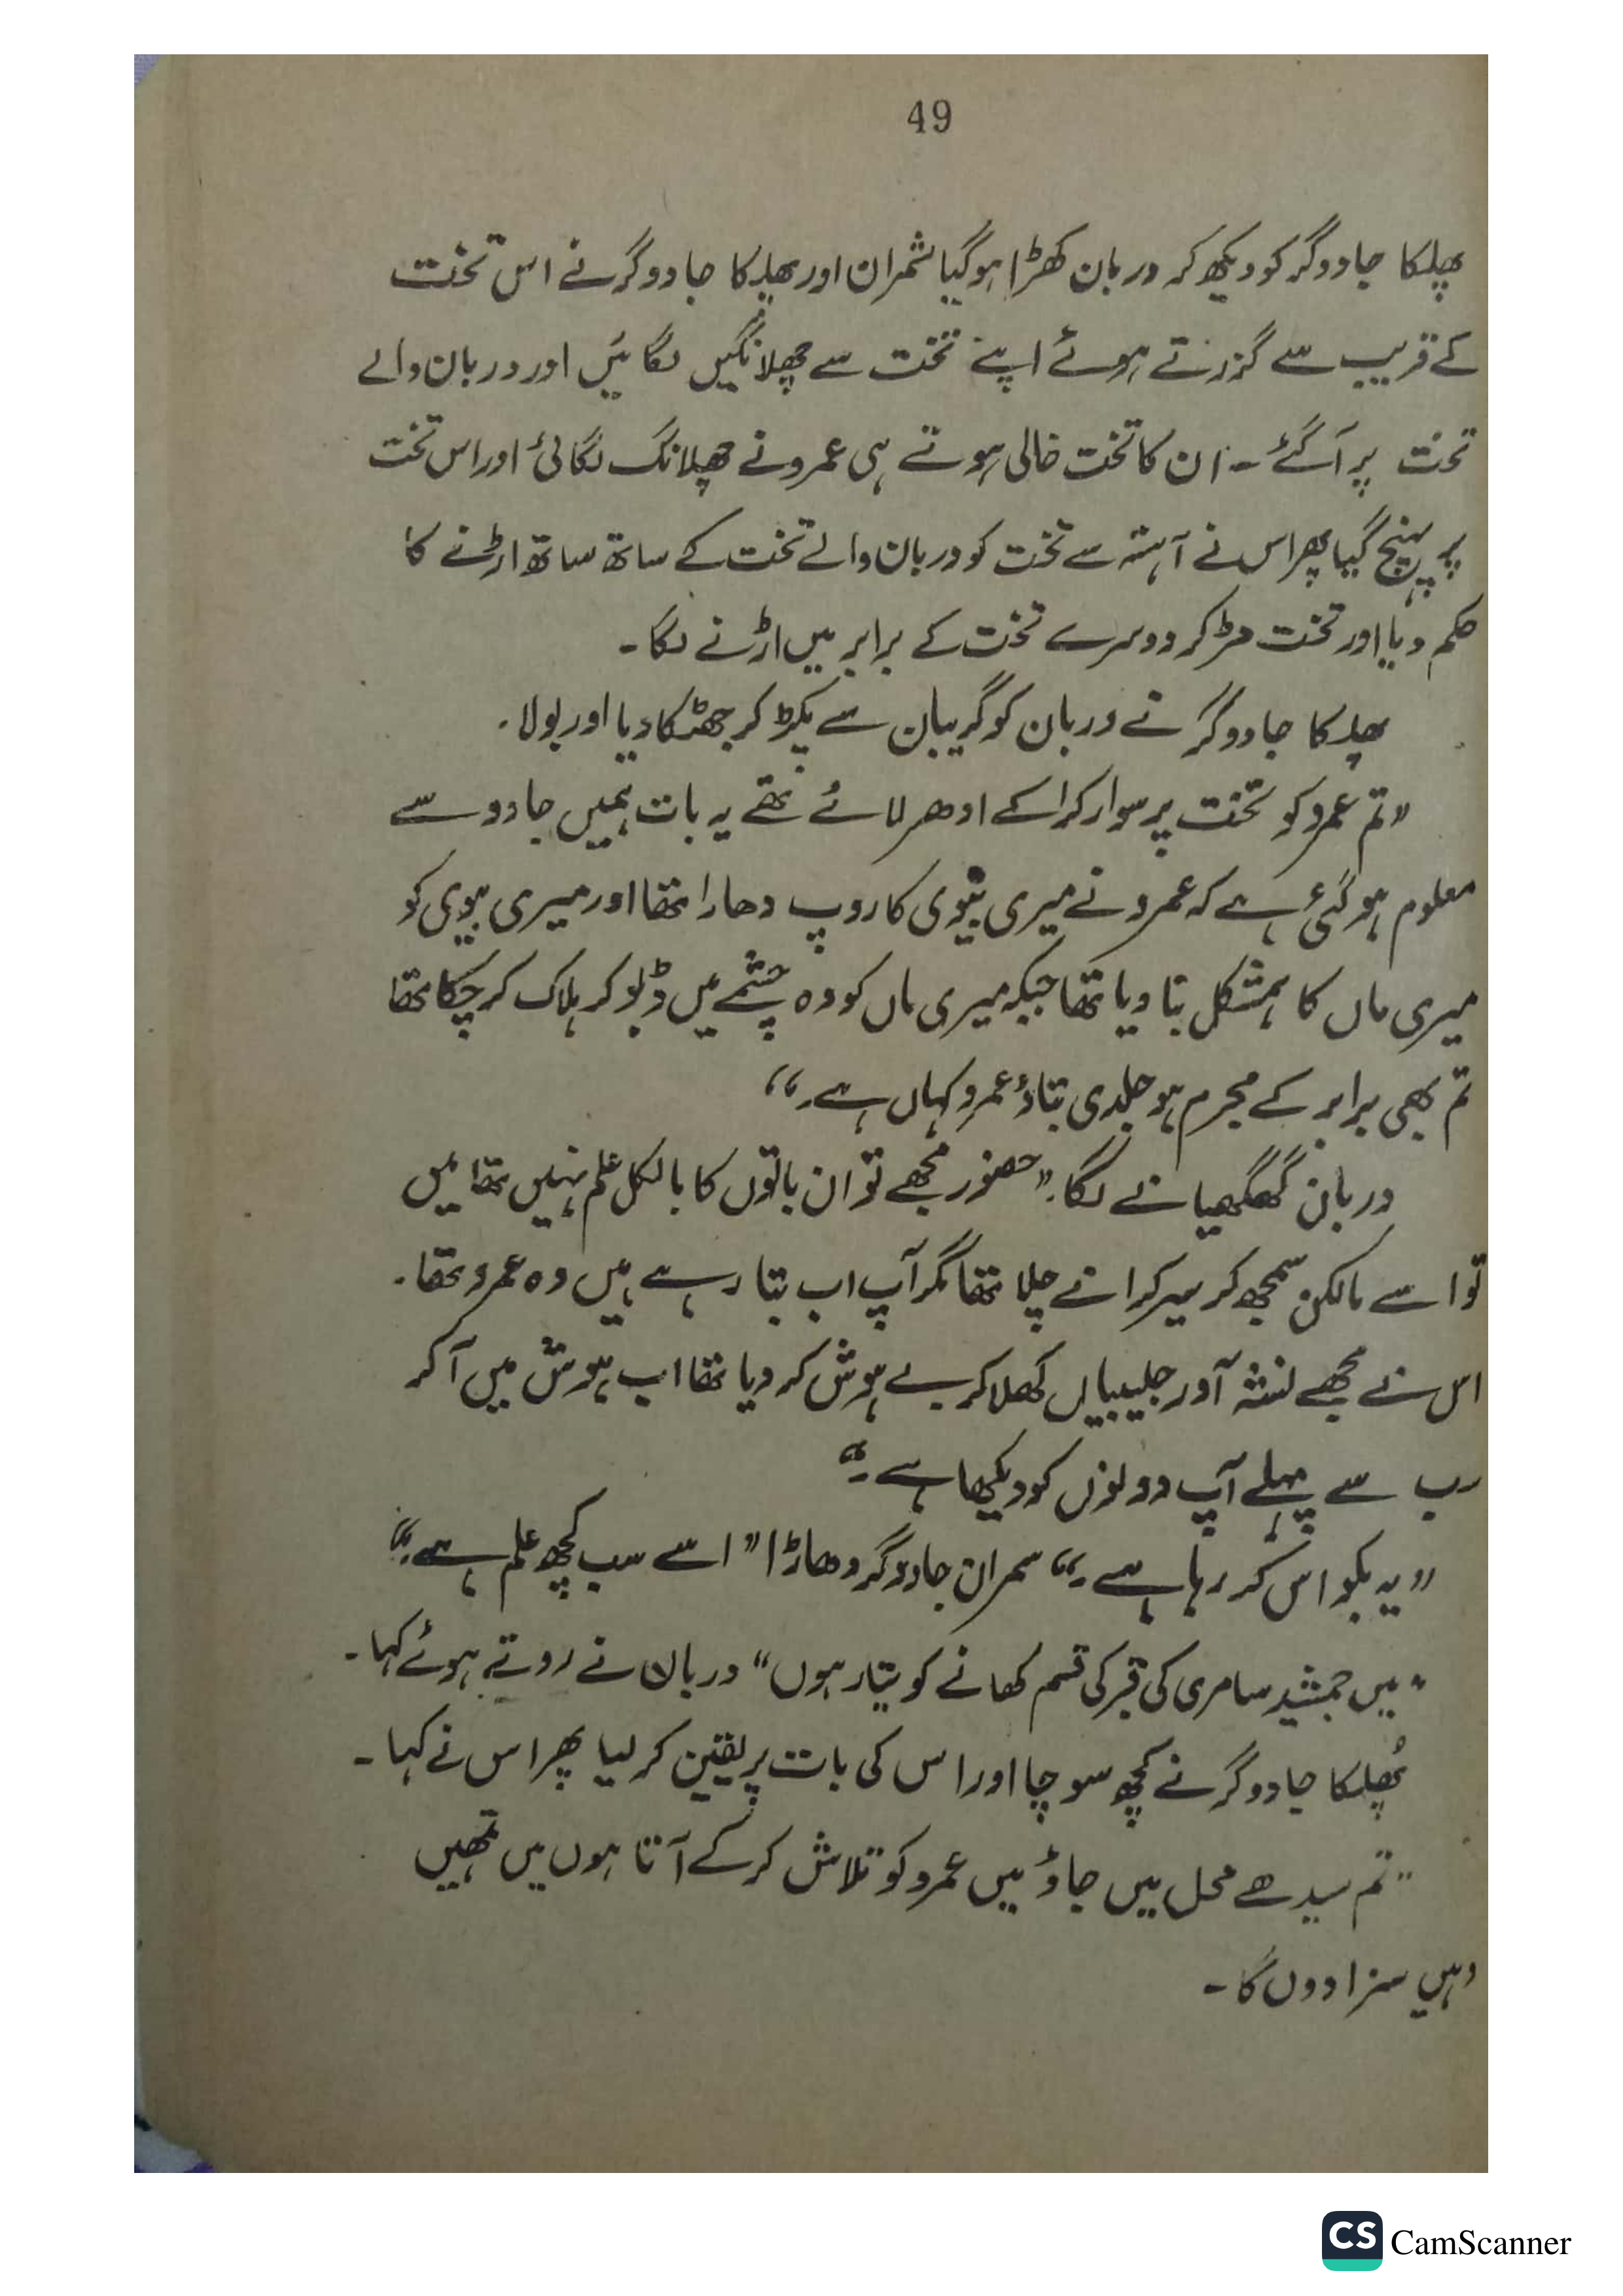 49
پھلکا جادوگر کو دیکھ کر دربان کھڑا ہو گیا شمران اور پھلکا جادوگر نے اس تخت
کے قریب سے گزرتے ہوئے اپنے تخت سے چھلانگیں لگائیں اور دربان والے
تخت پر آ گئے ۔ ان کا تخت خالی ہوتے ہی عمرو نے چھلانگ لگائی اور اس تخت
پر پہنچ گیا پھر اس نے آہستہ سے تخت کو دربان والے تخت کے ساتھ ساتھ اڑنے کا
حکم دیا اور تخت مڑ کر دوسرے تخت کے برابر میں اڑنے لگا ۔
پھلکا جادوگر نے دربان کو گریبان سے پکڑ کر جھٹکا دیا اور بولا ۔
"تم عمرو کو تخت پر سوار کرا کے ادھر لائے تھے یہ بات ہمیں جادو سے
معلوم ہو گئی ہے کہ عمرو نے میری بیوی کا روپ دھارا تھا اور میری بیوی کو
میری ماں کا ہمشکل بنا دیا تھا جبکہ میری ماں کو وہ چشمے میں ڈبو کر ہلاک کر چکا تھا
تم بھی برابر کے مجرم ہو جلدی بتاؤ عمرو کہاں ہے ۔"
دربان گھگھیانے لگا ۔ "حضور مجھے تو ان باتوں کا بالکل علم نہیں تھا میں
تو اسے مالکن سمجھ کر سیر کرانے چلا تھا مگر آپ اب بتا رہے ہیں وہ عمرو تھا ۔
اس نے مجھے نشہ آور جلیبیاں کھلا کر بے ہوش کر دیا تھا اب ہوش میں آ کر
سب سے پہلے آپ دونوں کو دیکھا ہے ۔"
"یہ بکواس کر رہا ہے ۔" سمران جادوگر دھاڑا "اسے سب کچھ علم ہے ۔"
"میں جمشید سامری کی قبر کی قسم کھانے کو تیار ہوں" دربان نے روتے ہوئے کہا ۔
پُھلکا جادوگر نے کچھ سوچا اور اس کی بات پر یقین کر لیا پھر اس نے کہا ۔
"تم سیدھے محل میں جاؤ میں عمرو کو تلاش کر کے آتا ہوں میں تمھیں
وہیں سزا دوں گا ۔
CS CamScanner